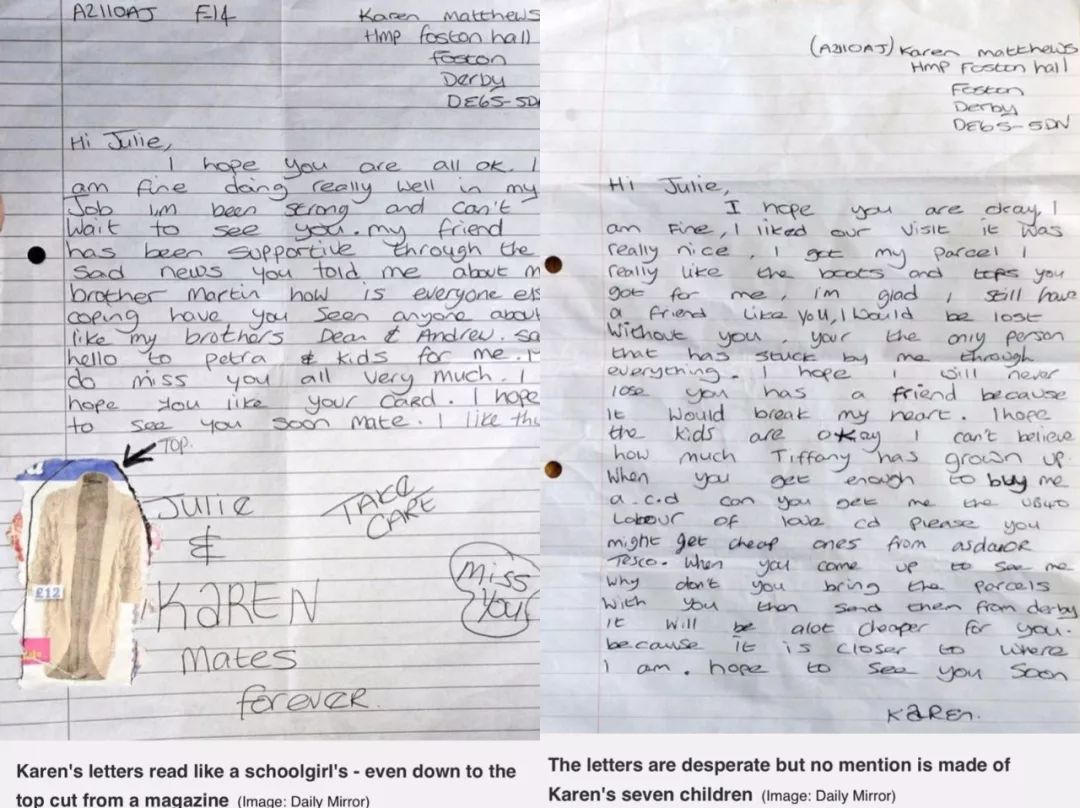 A2110AJ F-14
Karen Matthews
Hmp foston hall
foston
Derby
DE65-5D
Hi Julie,
I hope you are all ok. I
am fine doing really well in my
Job I,m been strong and can't
Wait to see you. my friend
has been supportive through the
Sad news you told me about m
brother Martin how is everyone els
coping have you seen anyone about
like my brothers Dean & Andrew. sa
hello to petra & kids for me. I
do miss you all very much. I
hope you like your card. I hope
to see you soon mate. I like thi
TOP.
£12
Julie
&
KAREN
Mates
forever.
TAKE
CARE
Miss
You
Karen's letters read like a schoolgirl's - even down to the
top cut from a magazine (Image: Daily Mirror)
(A2110AJ) Karen matthews
Hmp Foston hall
Foston
Derby
DE65-5DN
Hi Julie,
I hope you are okay, I
am Fine, I liked our visit it was
really nice, I got my parcel I
really like the boots and tops you
got for me, i'm glad I still have
a friend like you, I would be lost
Without you, your the only person
that has stuck by me through
everything. I hope I will never
lose you has a friend because
it would break my heart. I hope
the kids are okay I can't believe
how much Tiffany has grown up.
When you get enough to buy me
a c.d can you get me the UB40
Labour of love cd please you
might get cheap ones from asda OR
Tesco. When you come up to see me
why don't you bring the parcels
With you then send them from derby
it will be alot cheaper for you.
because it is closer to where
I am. hope to see you soon
KaREn.
The letters are desperate but no mention is made of
Karen's seven children (Image: Daily Mirror)